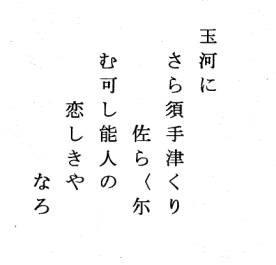 玉河に
さら須手津くり
佐ら〱尓
む可し能人の
恋しきや
なろ